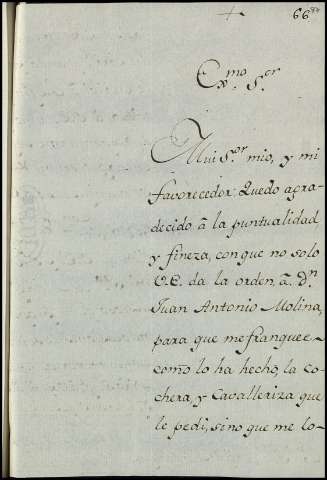 + 66
Exmo. Sor
Mui S.or mio, y mi
favorecedor: Quedo agra-
decido à la puntualidad,
y fineza, con que no solo
V.E. da la orden, à D.n
Juan Antonio Molina,
para que me franquee-
como lo ha hecho, la co-
chera, y Cavalleriza que
le pedi, sino que me lo-